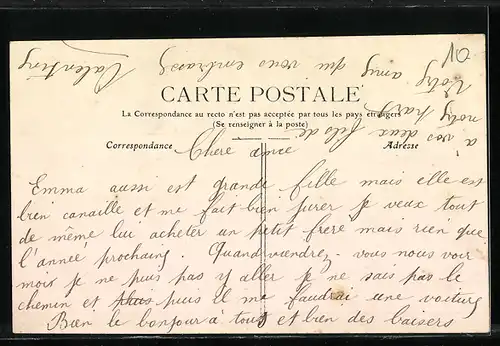 10
CARTE POSTALE
La Correspondance au recto n'est pas acceptée par tous les pays étrangers
(Se renseigner à la poste)
Correspondance
Adresse
Chere amie
Emma aussi est grande fille mais elle est
bien canaille et me fait bien jurer je veux tout
de même lui acheter un petit frere mais rien que
l'année prochaing. Quand viendrez-vous nous voir
moir je ne puis pas y aller je ne sais pas le
chemin et puis il me faudrai une voiture
Bien le bonjour à tous et bien des baisers
à vos deux fils de
notre
Votre amie qui vous embrasse
Valentine